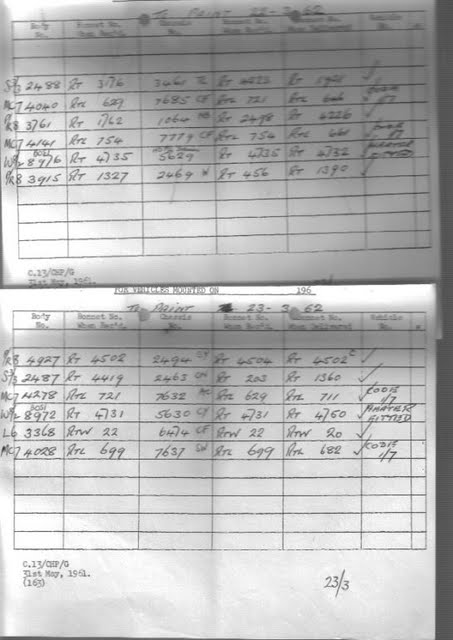 To PAINT 22-3-62
Body No. Bonnet No. When Rec'd. Chassis No. Bonnet No. Bonnet No. When Delivered Vehicle No.
2488 RT 3176 3461 RT RT 1921 ✓
MC7 4040 RTL 629 7685 CF RTL 721 RTL ✓
PR8 3761 RT 1762 1064 RT 2498 RT 4226 ✓
MC7 4141 RTL 754 7779 CF RTL 754 RTL 661 ✓
8976 RT 4735 5629 RT 4735 RT 4732 ✓ HEATER FITTED
PR8 3915 RT 1327 2469 RT 456 RT 1390 ✓
C.13/CHP/G
31st May, 1961.
FOR VEHICLES MOUNTED ON 196
To PAINT 23-3-62
Body No. Bonnet No. When Rec'd. Chassis No. Bonnet No. When Rec'd. Bonnet No. When Delivered Vehicle No.
PR8 4927 RT 4502 2494 RT 4504 RT 4502 ✓
2487 RT 4419 2463 RT 203 RT 1360 ✓
MC7 4278 RTL 721 7632 RTL 629 RTL 711 ✓ 1/7
8972 RT 4731 5630 CY RT 4731 RT 4750 ✓ HEATER FITTED
L6 3368 RTW 22 6474 CF RTW 22 RTW 20 ✓
MC7 4028 RTL 699 7637 RTL 699 RTL 682 ✓ 1/7
C.13/CHP/G
31st May, 1961.
(163)
23/3